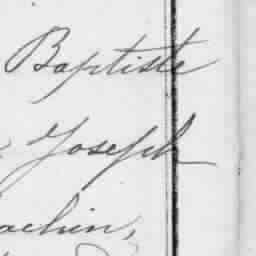 Baptiste
Joseph
achin,